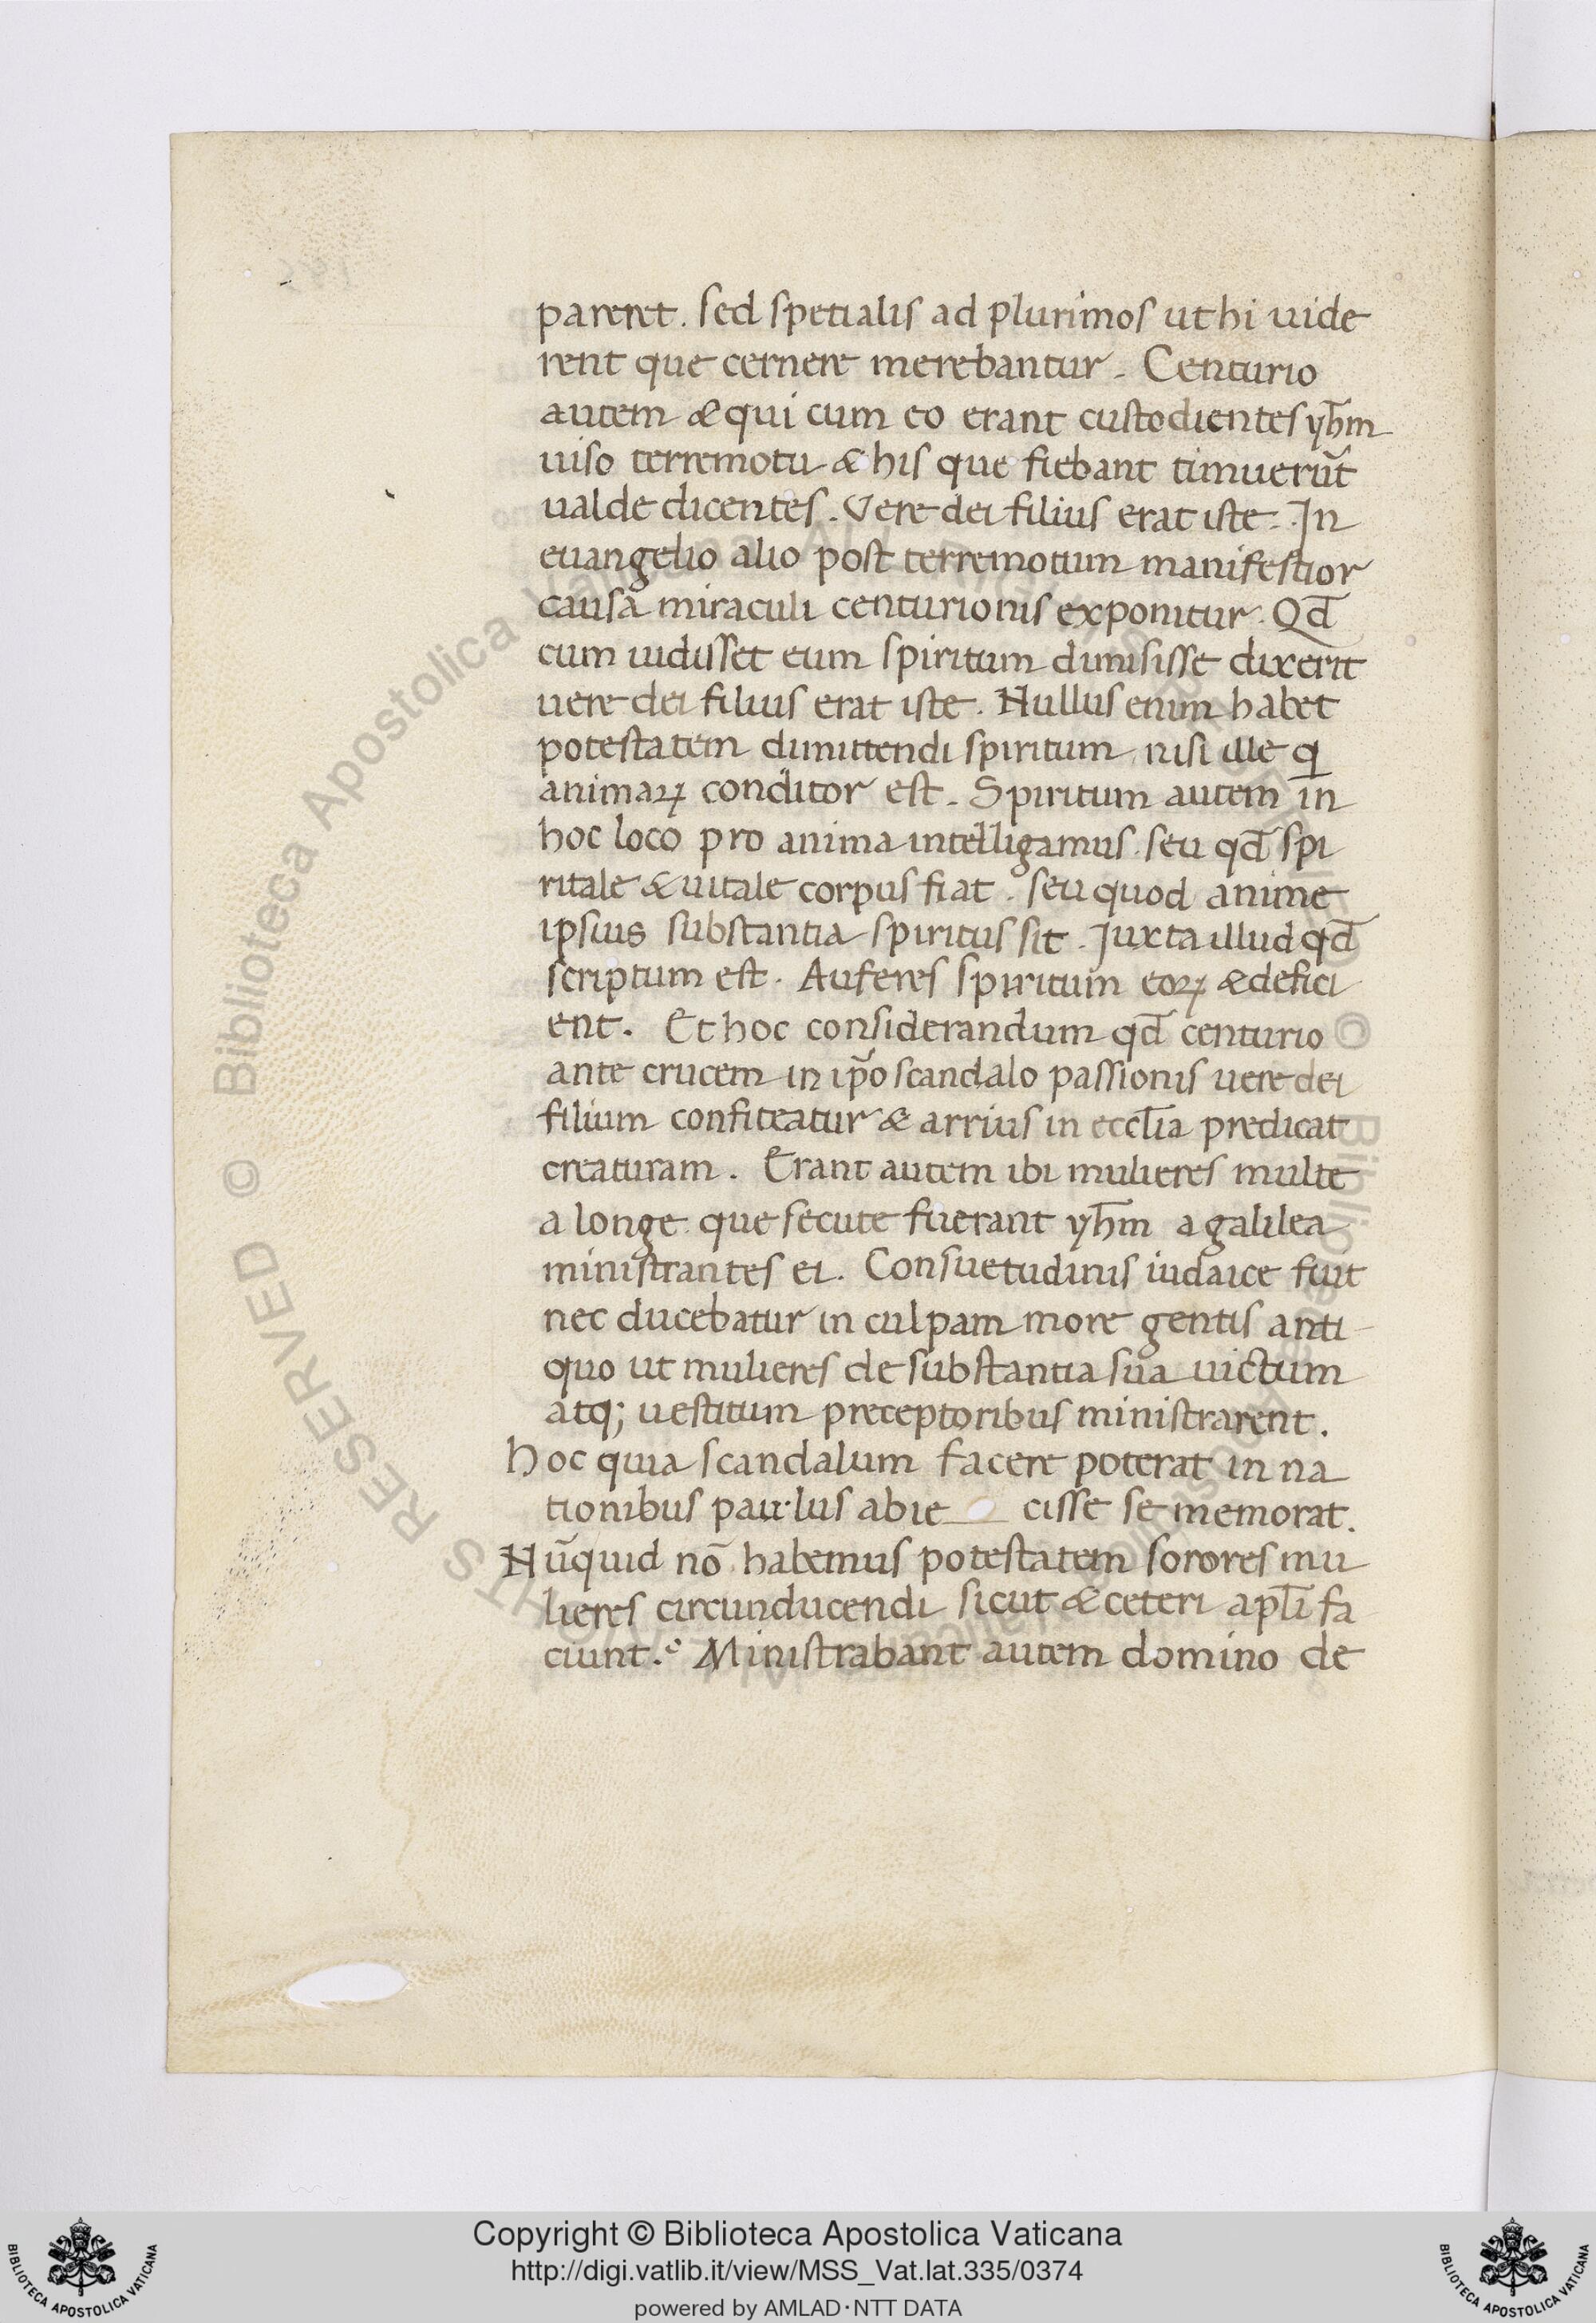 pareret. sed spetialis ad plurimos ut hi uide
rent que cernere merebantur. Centurio
autem & qui cum eo erant custodientes yħm
uiso terremotu & his que fiebant timuerūt
ualde dicentes. Vere dei filius erat iste. In
euangelio alio post terremotum manifestior
causa miraculi centurionis exponitur. Qđ
cum uidisset eum spiritum dimisisse dixerit
uere dei filius erat iste. Nullus enim habet
potestatem dimittendi spiritum nisi ille q̄
animaꝝ conditor est. Spiritum autem in
hoc loco pro anima intelligamus. seu qđ spi
ritale & uitale corpus fiat. seu quod anime
ipsius substantia spiritus sit. Juxta illud qđ
scriptum est. Auferes spiritum eoꝝ & defici
ent. Et hoc considerandum qđ centurio
ante crucem in ip̄o scandalo passionis uere dei
filium confiteatur & arrius in eccl̄ia predicat
creaturam. Erant autem ibi mulieres multe
a longe que secute fuerant yħm a galilea
ministrantes ei. Consuetudinis iudaice fuit
nec ducebatur in culpam more gentis anti-
quo ut mulieres de substantia sua uictum
atq; uestitum preceptoribus ministrarent.
hoc quia scandalum facere poterat in na
tionibus paulus abie cisse se memorat.
Nūquid nō habemus potestatem sorores mu
lieres circunducendi sicut & ceteri apl̄i fa
ciunt.? Ministrabant autem domino de
© Biblioteca Apostolica Vaticana
RESERVED
Copyright © Biblioteca Apostolica Vaticana
http://digi.vatlib.it/view/MSS_Vat.lat.335/0374
powered by AMLAD·NTT DATA
BIBLIOTECA APOSTOLICA VATICANA
BIBLIOTECA APOSTOLICA VATICANA